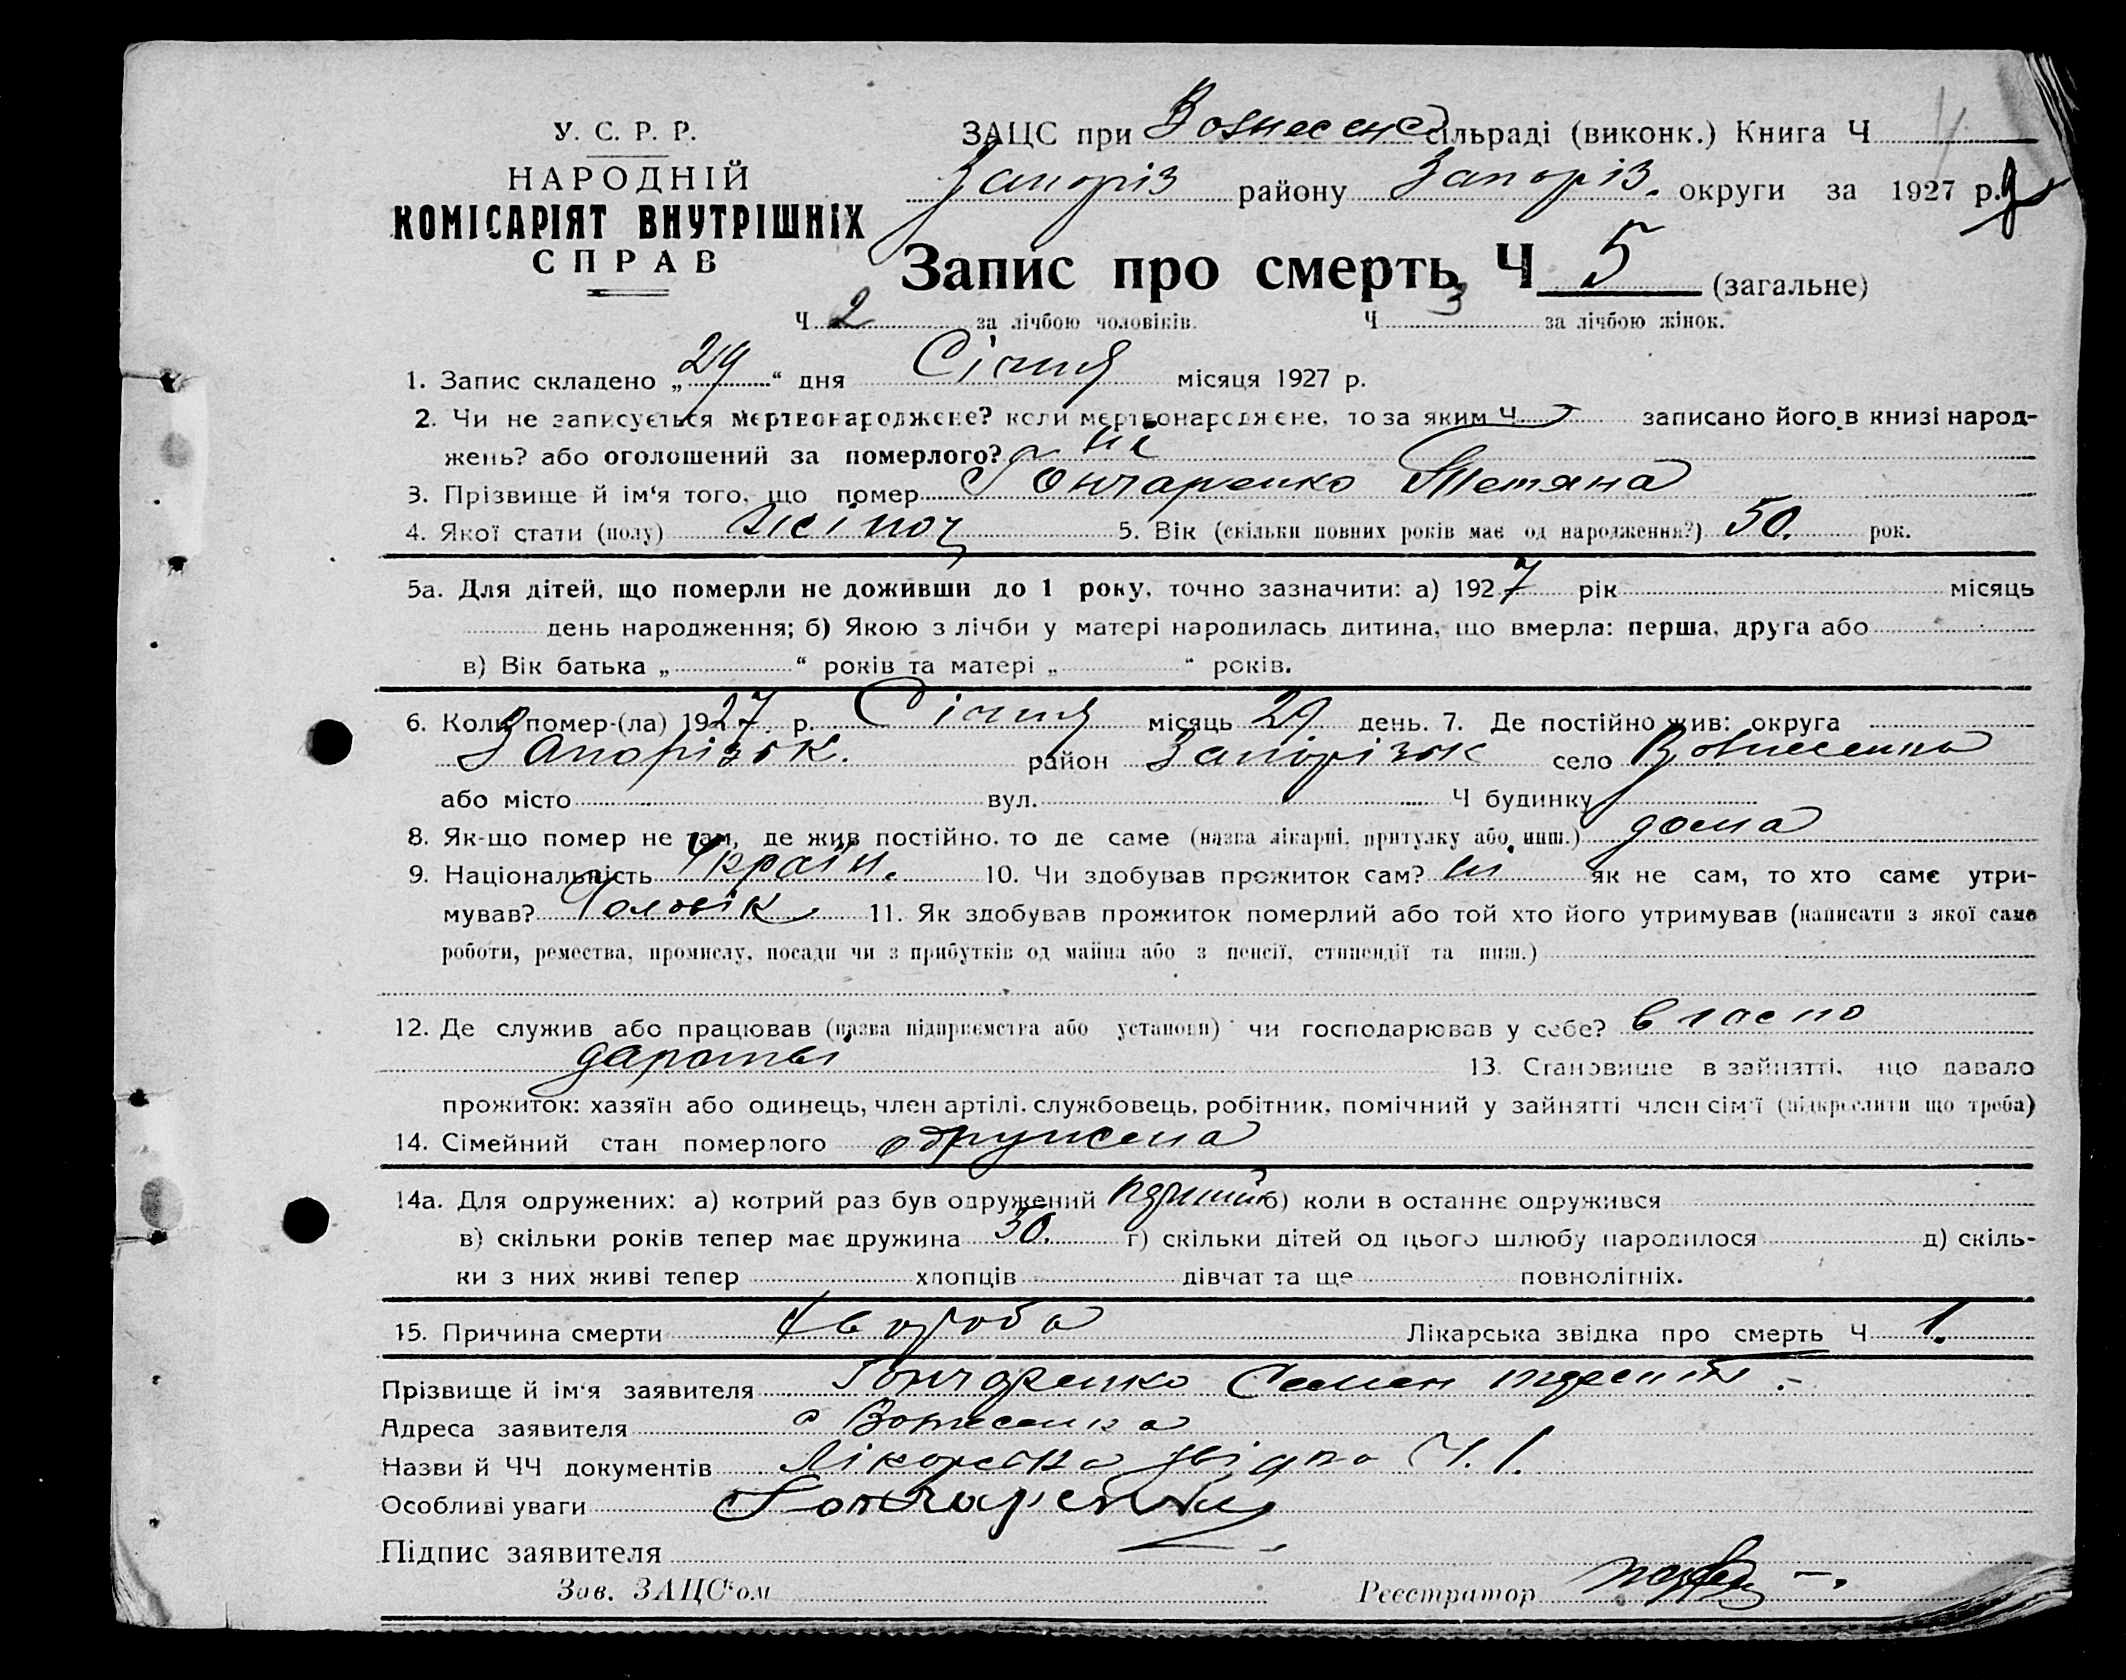 У. С. Р. Р.
НАРОДНІЙ
КОМІСАРІЯТ ВНУТРІШНІХ
СПРАВ
ЗАЦС при Вознесенс сільраді (виконк.) Книга Ч
Запоріз району Запоріз. округи за 1927 р.
Запис про смерть Ч 5 (загальне)
Ч 2 за лічбою чоловіків. Ч 3 за лічбою жінок.
1. Запис складено „29“ дня Січня місяця 1927 р.
2. Чи не записується мертвонароджене? коли мертвонароджене, то за яким Ч записано його в книзі народ-
жень? або оголошений за померлого? ні
3. Прізвище й ім‘я того, що помер Гончаренко Тетяна
4. Якої стати (полу) жіноч 5. Вік (скільки повних років має од народження?) 50. рок.
5а. Для дітей, що померли не доживши до 1 року, точно зазначити: а) 1927 рік місяць
день народження; б) Якою з лічби у матері народилась дитина, що вмерла: перша, друга або
в) Вік батька „ “ років та матері „ “ років.
6. Коли помер-(ла) 1927 р. Січня місяць 29 день. 7. Де постійно жив: округа
Запорізьк. район Запорізьк село Вознесенка
або місто вул. Ч будинку
8. Як-що помер не там, де жив постійно, то де саме (назва лікарні, притулку або инш.) дома
9. Національність Україн. 10. Чи здобував прожиток сам? ні як не сам, то хто саме утри-
мував? Чоловік 11. Як здобував прожиток померлий або той хто його утримував (написати з якої саме
роботи, ремества, промислу, посади чи з прибутків од майна або з пенсії, стипендії та инш.)
12. Де служив або працював (назва підприємства або установи) чи господарював у себе? власно
13. Становище в зайнятті, що давало
прожиток: хазяїн або одинець, член артілі, службовець, робітник, помічний у зайнятті член сім‘ї (підкреслити що треба)
14. Сімейний стан померлого одружена
14а. Для одружених: а) котрий раз був одружений перший б) коли в останнє одружився
в) скільки років тепер має дружина 50. г) скільки дітей од цього шлюбу народилося д) скіль-
ки з них живі тепер хлопців дівчат та ще повнолітніх.
15. Причина смерти Хвороба Лікарська звідка про смерть Ч 1.
Прізвище й ім‘я заявителя Гончаренко Семен
Адреса заявителя с Вознесенка
Назви й ЧЧ документів Лікарська звідка Ч. 1.
Особливі уваги Гончаренко
Підпис заявителя
Зав. ЗАЦС‘ом Реєстратор